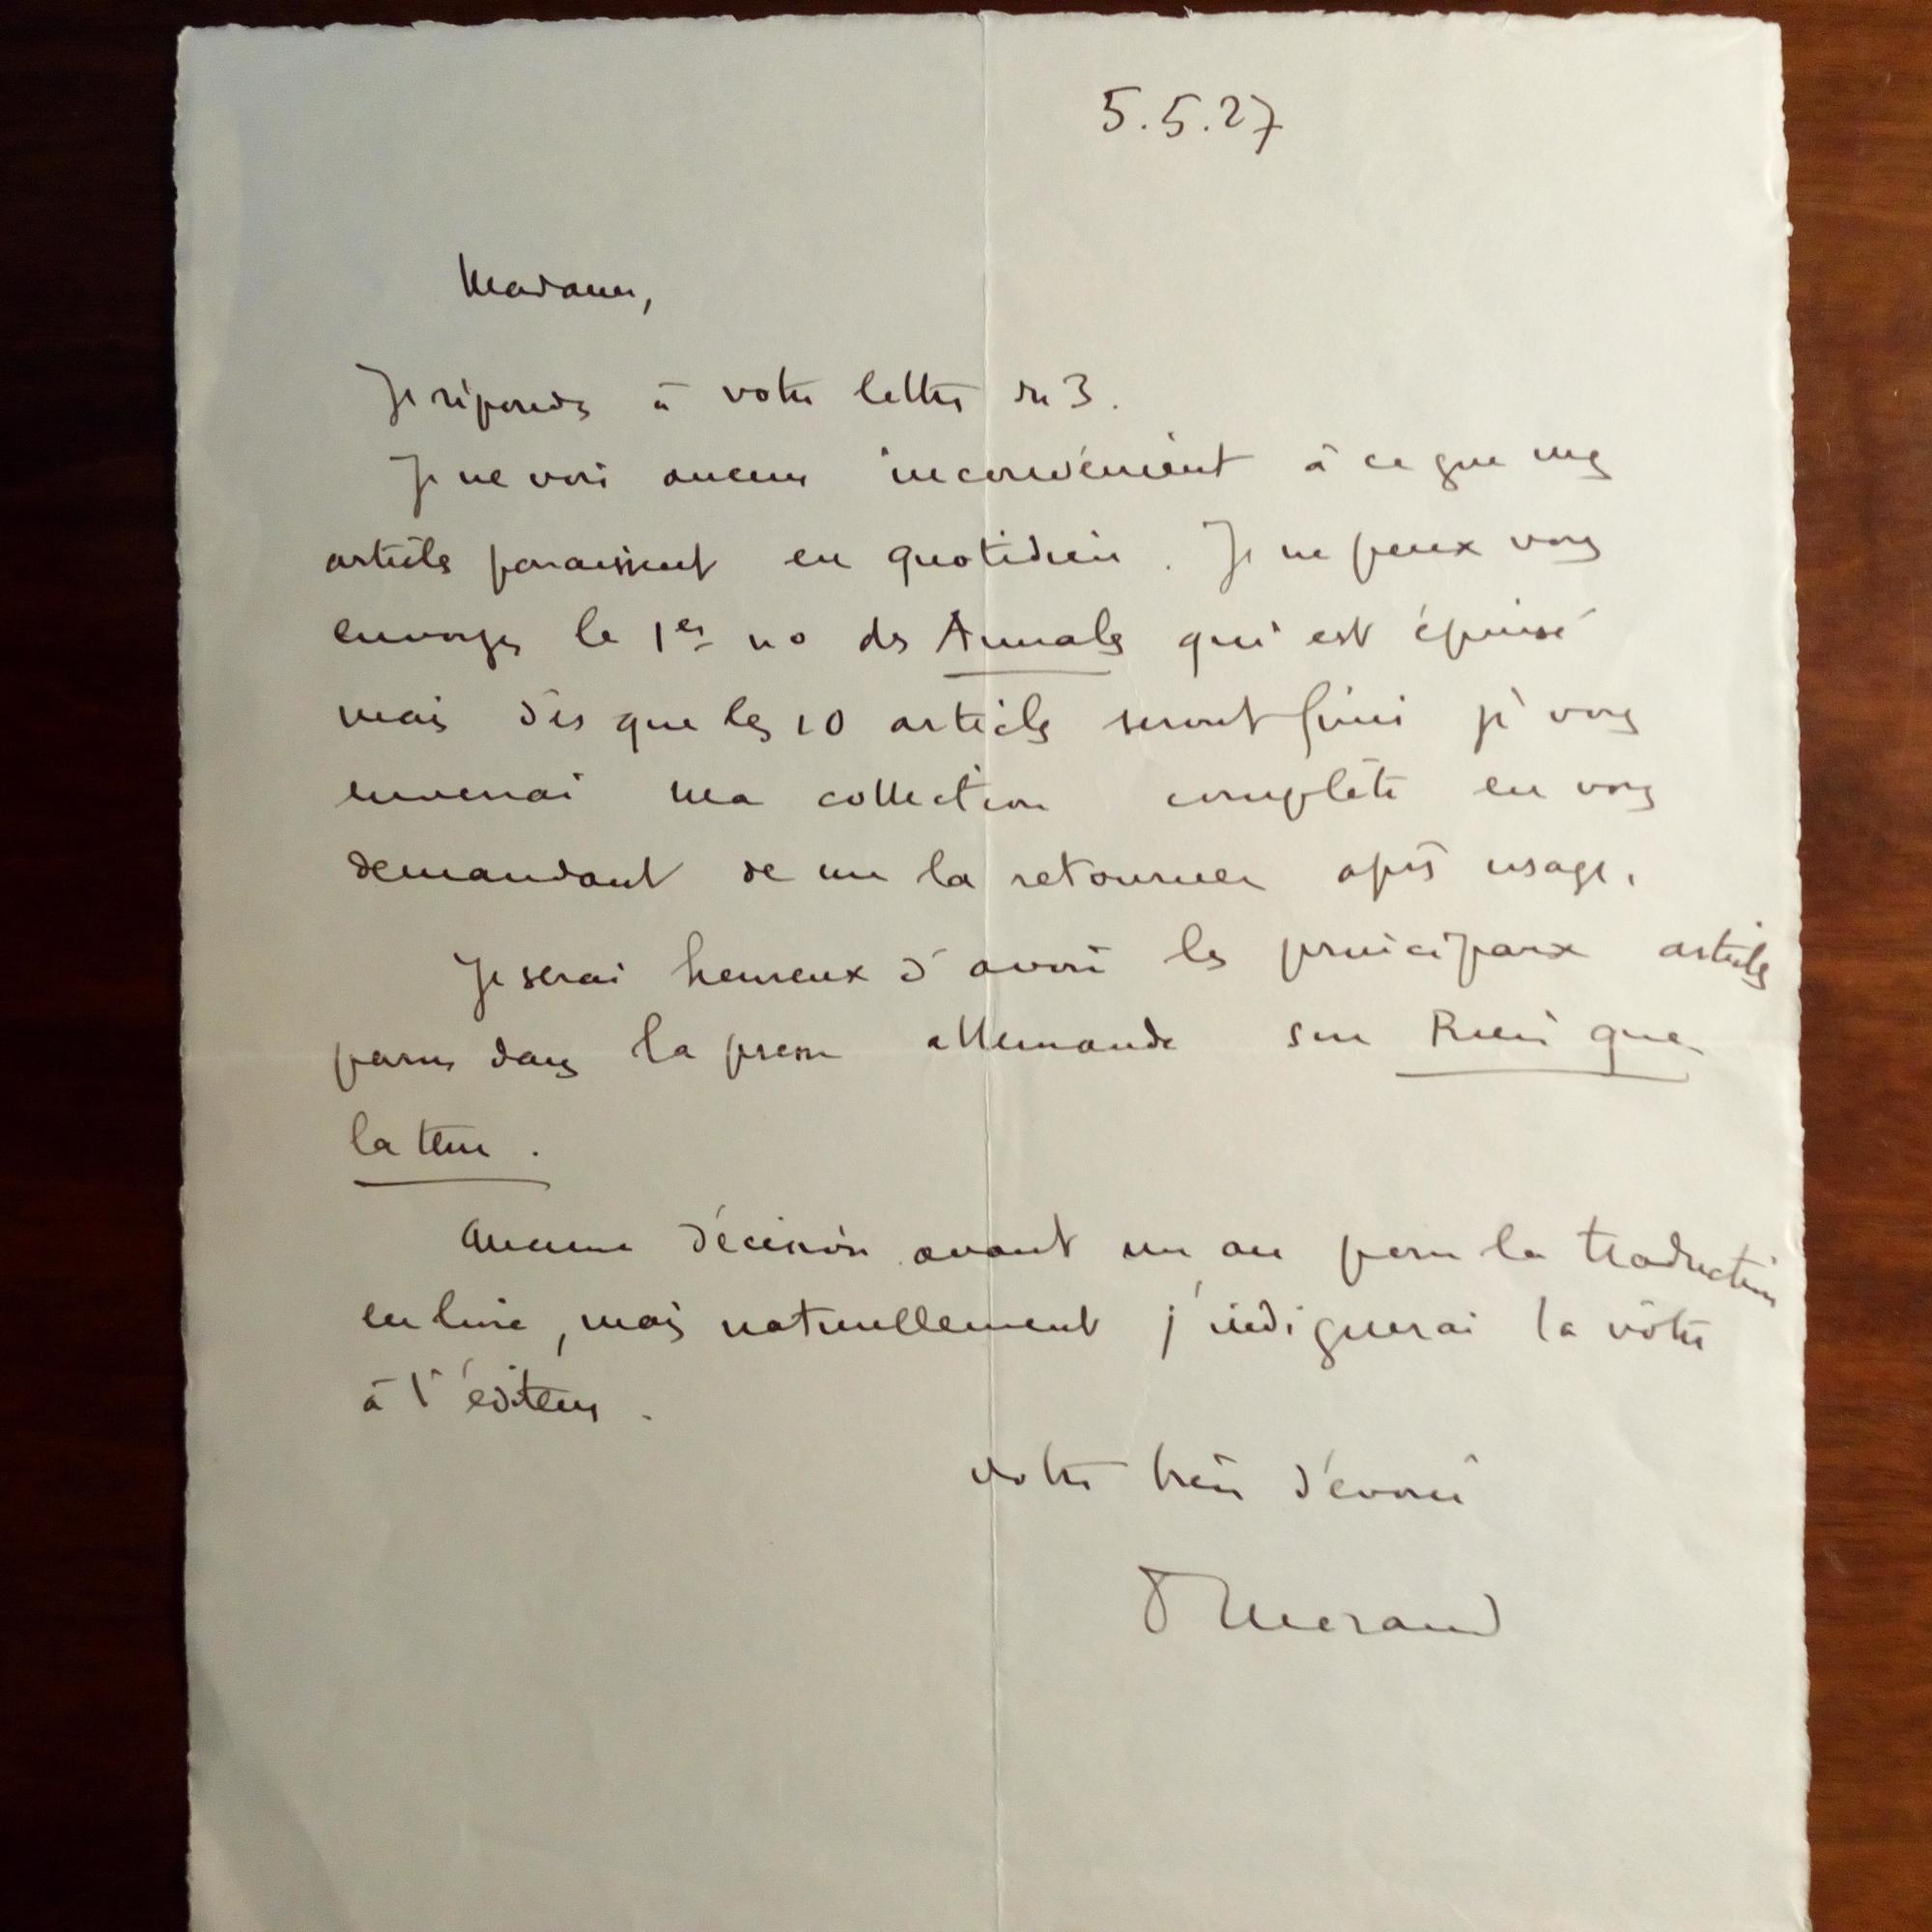 5.5.27
Madame,
Je réponds à votre lettre du 3.
Je ne vois aucun inconvénient à ce que mes
articles paraissent en quotidien. Je ne peux vous
envoyer le 1er no des Annales qui est épuisé
mais dès que les 10 articles seront finis je vous
enverrai ma collection complète en vous
demandant de me la retourner après usage.
Je serai heureux d'avoir les principaux articles
parus dans la presse allemande sur Rien que
la terre.
Aucune décision avant un an pour la traduction
en livre, mais naturellement j'indiquerai la vôtre
à l'éditeur.
votre bien dévoué
P Morand